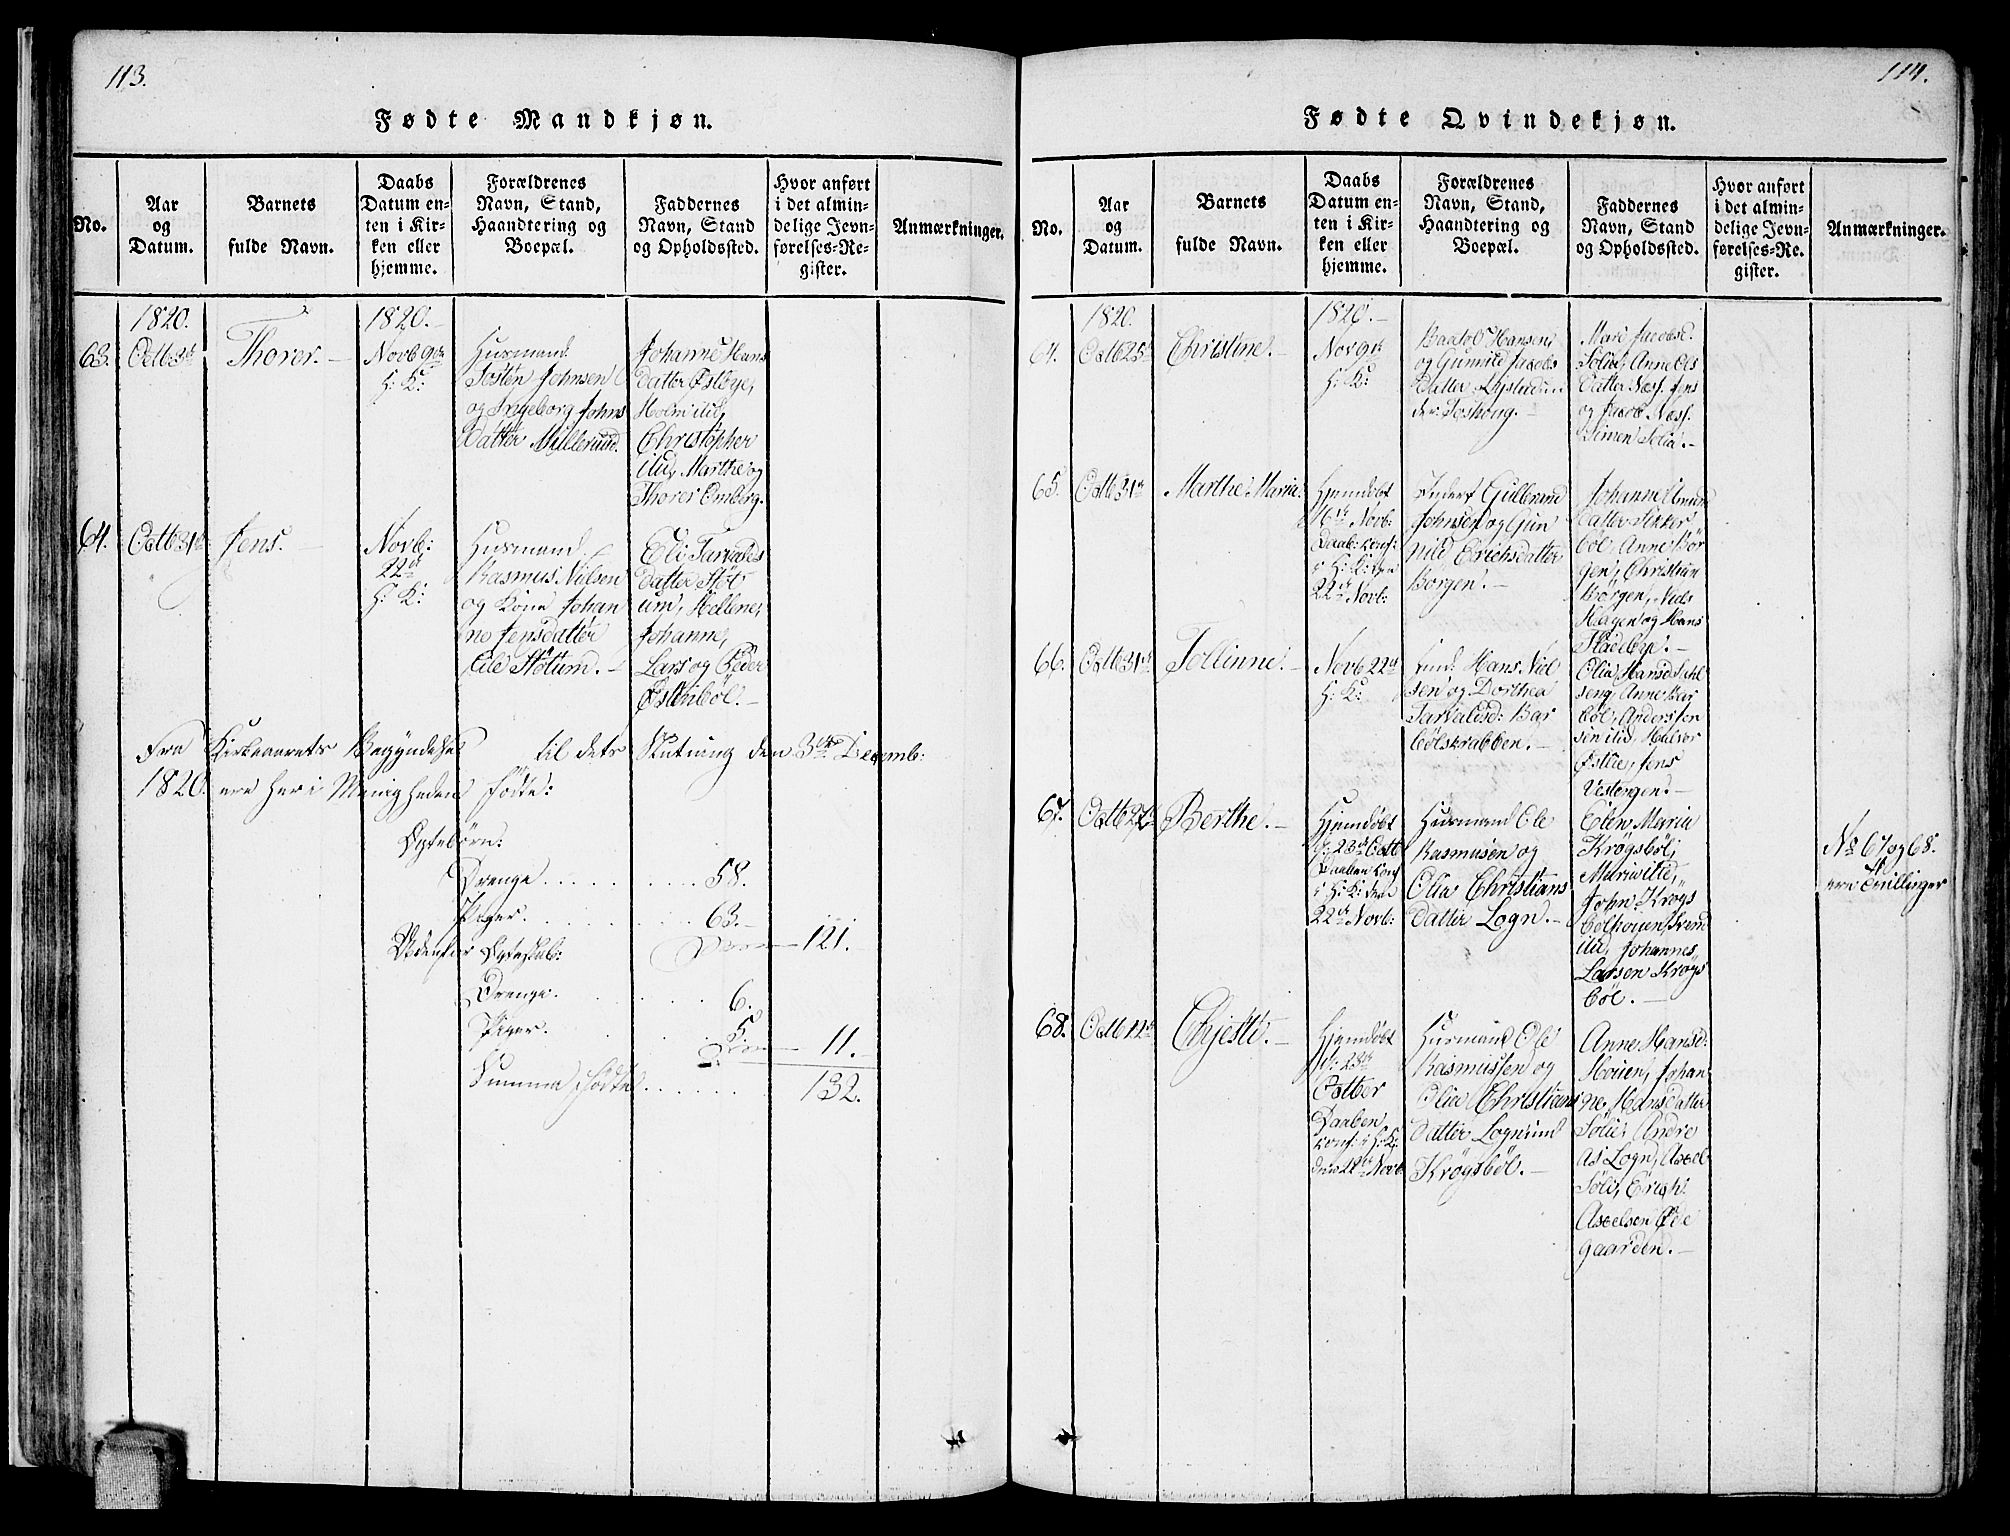 113.
Fødte Mandkjøn.
No.
Aar
og
Datum.
Barnets
fulde Navn.
Daabs
Datum en-
ten i Kir-
ken eller
hjemme.
Forældrenes
Navn, Stand,
Haandtering og
Boepæl.
Faddernes
Navn, Stand
og Opholdssted.
Hvor anført
i det almin-
delige Jevn-
førelses-Re-
gister.
Anmærkninger.
63.
1820.
Octb 3
Thorer.
1820.
Novb 9de
H: K:
Husmand
Josten Johnsen
og Ingeborg Johns
Datter Millerud.
Johanne Hans
Datter Østbye,
Holm ibid,
Christopher
ibid, Marthe og
Thorer Omberg.
64.
Octb 31te
Jens.
Novb:
22de
H: K:
Husmand
Rasmus Nielsen
og Kone Johan
ne Jensdatter
Eie Støtum.
Eli Tarvalds
datter Støt
um, Hellene,
Johanne,
Lars og Peder
Østenbøl.
Fra Kirkeaarets Begyndelse til dets Slutning den 3die Decemb:
1820 ere her i Menigheden fødte:
Ægtebörn:
Drenge 58.
Piger 63.
121.
Udenfor Ægteskab:
Drenge 6.
Piger 5.
11.
Summa fødte 132.
114.
Fødte Qvindekjøn.
No.
Aar
og
Datum.
Barnets
fulde Navn.
Daabs
Datum en-
ten i Kir-
ken eller
hjemme.
Forældrenes
Navn, Stand,
Haandtering og
Boepæl.
Faddernes
Navn, Stand
og Opholdssted.
Hvor anført
i det almin-
delige Jevn-
førelses-Re-
gister.
Anmærkninger.
64.
1820.
Octb 25
Christine.
1820.
Nov 9de
H: K:
Baatol Hansen
og Gunnild Jacobs
Datter
Mari Jacobsd.
Solia, Anne Ols
Datter Næss. Jens
og Jacob Næss.
Simen Solia.
65.
Octb 31te
Marthe Maria.
Hjemdöbt
6te Novb:
Daab: konf:
i H: K: den
22de Novb:
Gulbrand
Johnsen og Gun
nild Erichsdatter
Borgen.
Johanne Amund
Datter Sikker
böl, Anne Bör
gen, Christian
Börgen, Niels
Hagen og Hans
Stadeby.
66.
Octb 31te
Tollinne.
Novb 22de
H: K:
Hans Niel
sen og Dorthea
Tarvaldsd: Bar
bölskrabben.
Olia Hansd: Sehl
seng, Anne Bar
böl, Anders Jen
sen ibid, Halvor
Østlie, Jens
Vestengen.
67.
Octb 22
Berthe.
Hjemdöbt
d: 23de Octb
Daaben konf
i H: K: den
22de Novb:
Husmand Ole
Rasmusen og
Olia Christians
datter Logn.
Elen Maria
Krögsböl,
Maria ibid,
John Krogs
bölhoüen, Svend
ibid, Johannes
Larsen Krogs
böl.
No 67 og 68.
ere Tvillinger
68.
Octb 22
Chjesti.
Hjemdöbt
d: 23de
Octber
Daaben
konf: i H: K:
den 22de Novb:
Husmand Ole
Rasmussen og
Olia Christians
datter Logn und
Krögsböl.
Anne Hansd:
Hoüen, Johan
ne Hansdatter
Sölie, Andre
as Logn, Axel
Söli, Erich
Axelsen Øde
gaarden.